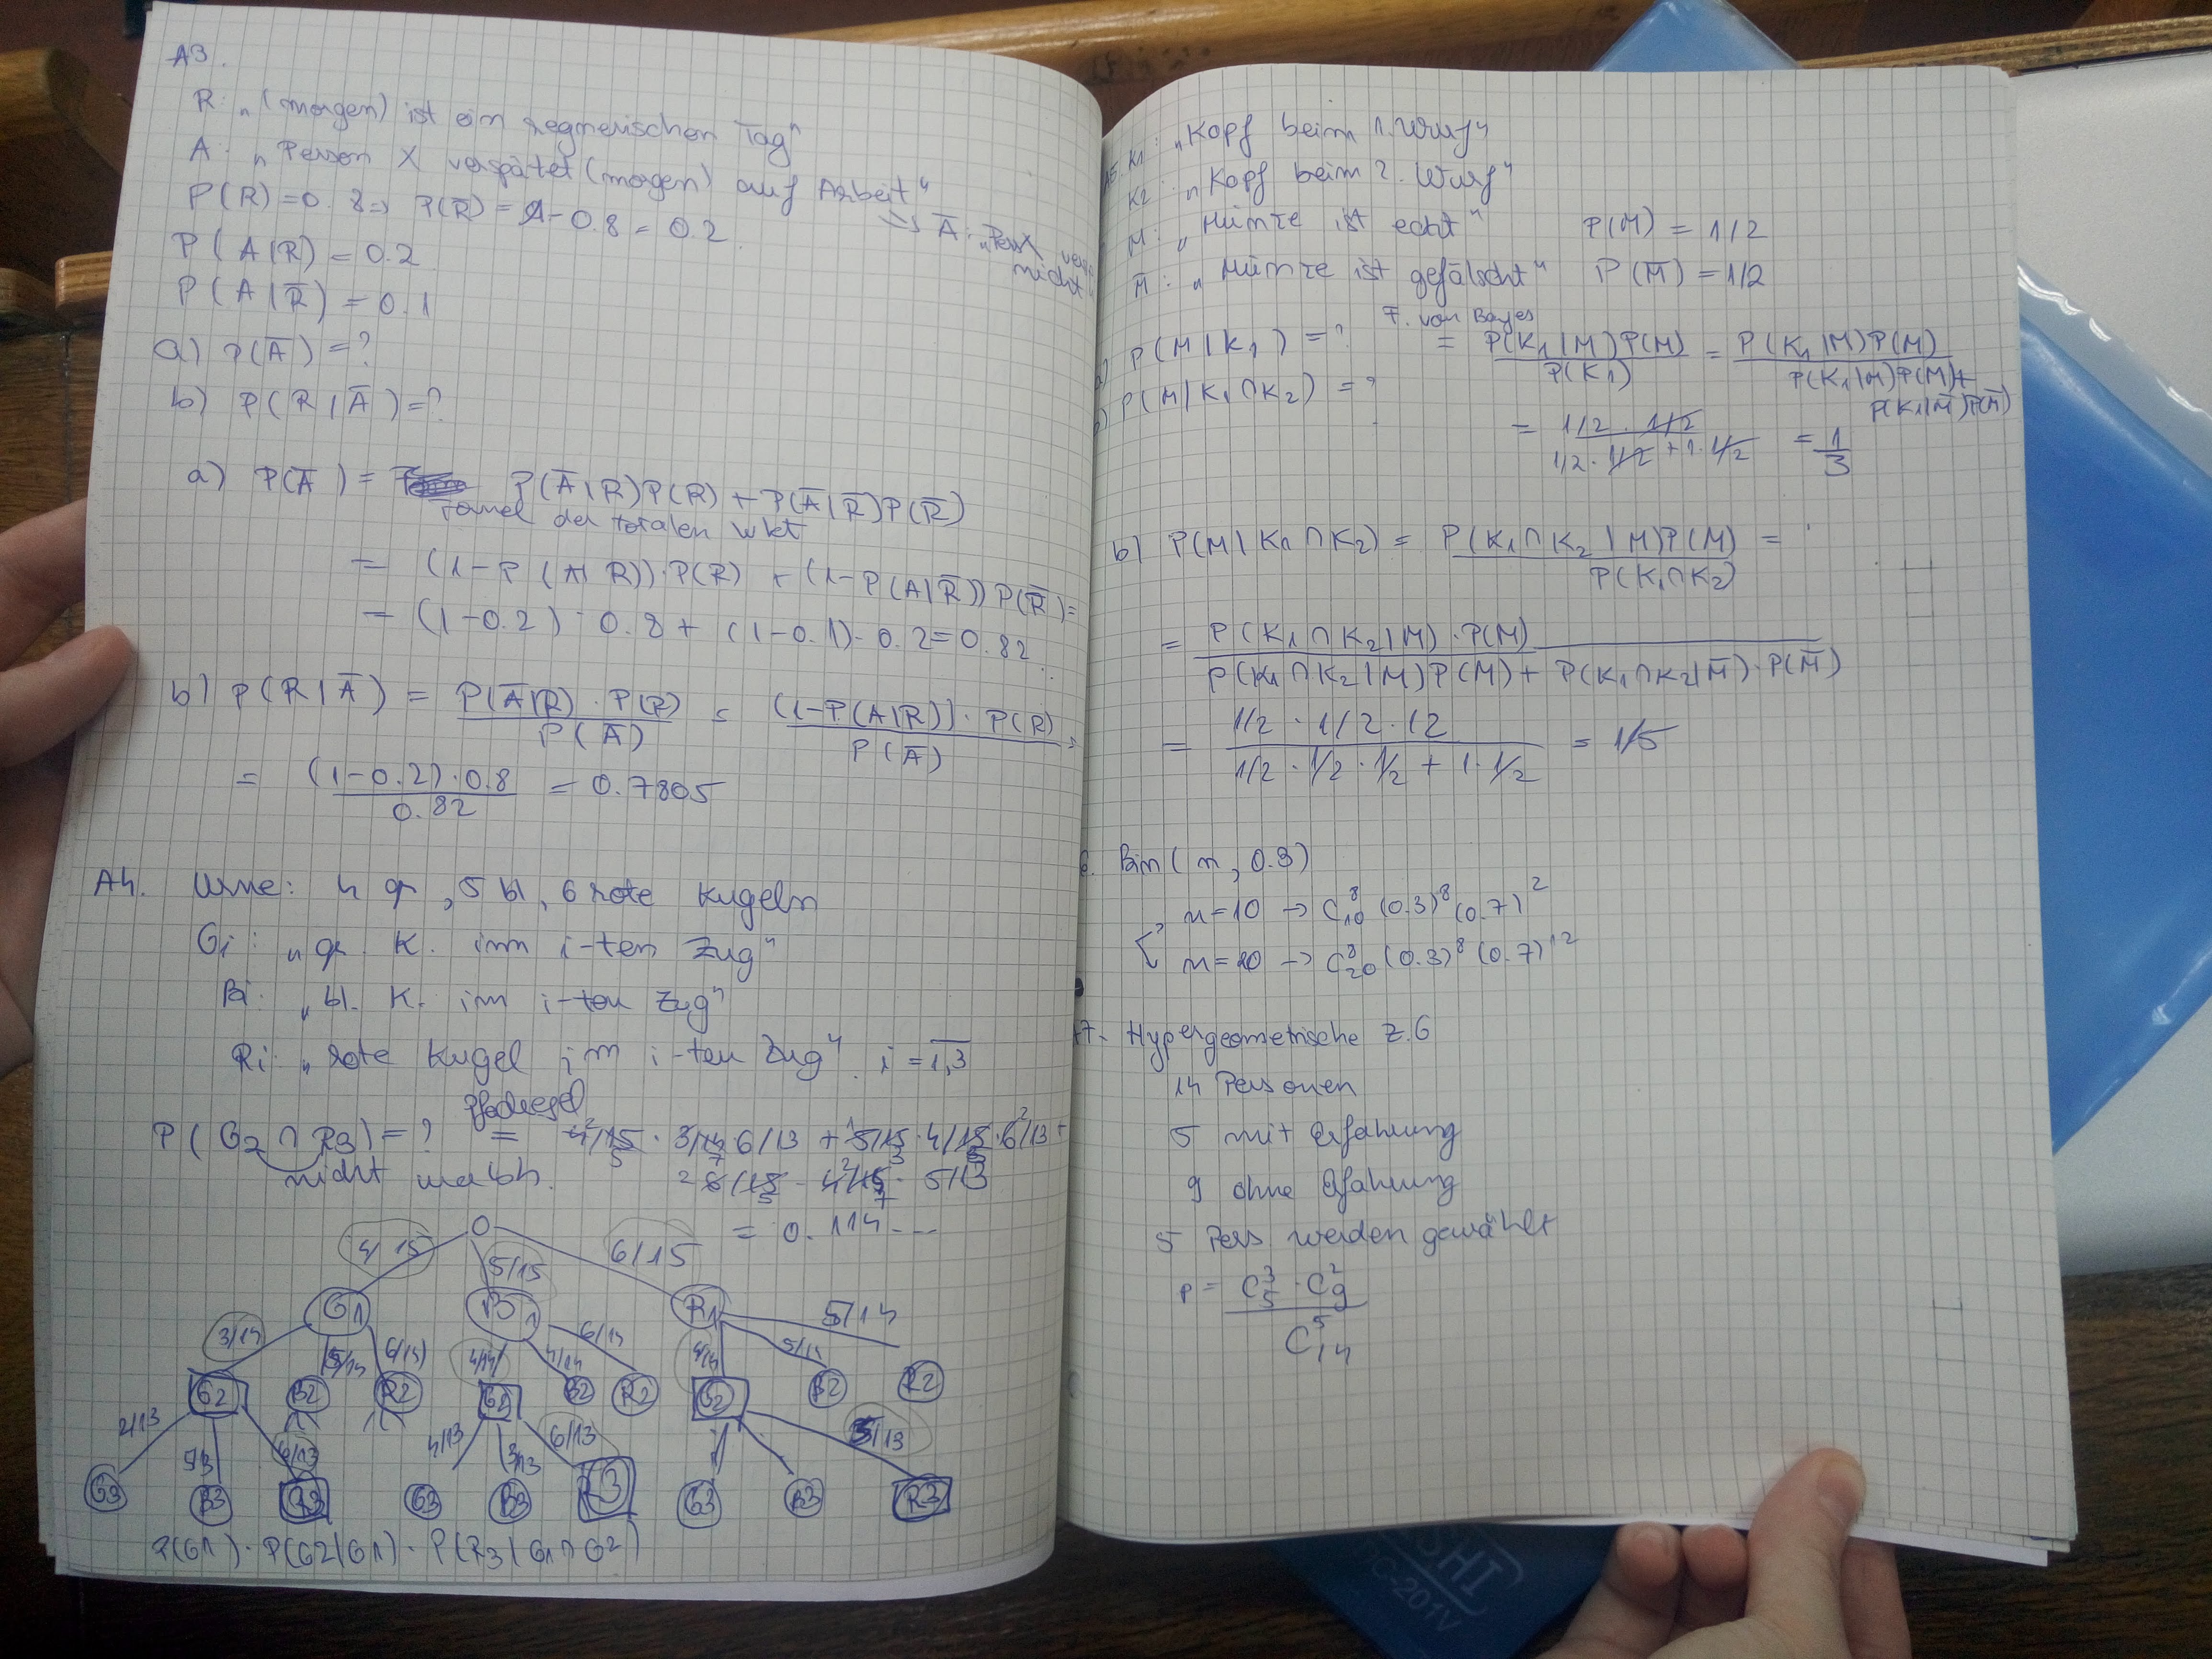 A3.
R: „(morgen) ist ein regnerischen Tag"
A: „Person X verspätet (morgen) auf Arbeit"
=> Ā: „Pers X
nicht"
P(R)=0.8 => P(R̄) = 1-0.8 = 0.2
P(A|R) = 0.2
P(A|R̄) = 0.1
a) P(Ā) = ?
b) P(R|Ā) = ?
a) P(Ā) = P(Ā|R)P(R) + P(Ā|R̄)P(R̄)
Formel der totalen Wkt
= (1-P(A|R))·P(R) + (1-P(A|R̄))P(R̄) =
= (1-0.2)·0.8 + (1-0.1)·0.2 = 0.82
b) P(R|Ā) = P(Ā|R)·P(R) / P(Ā) = (1-P(A|R))·P(R) / P(Ā) =
= (1-0.2)·0.8 / 0.82 = 0.7805
A4. Urne: 4 gr, 5 bl, 6 rote Kugeln
Gi: „gr. K. im i-ten Zug"
Bi: „bl. K. im i-ten Zug"
Ri: „rote Kugel im i-ten Zug" i = 1,3
Pfadregel
P(G2 ∩ R3) = ? = 4/15 · 3/14 · 6/13 + 5/15 · 4/14 · 6/13 +
nicht unabh.
6/15 · 4/14 · 5/13
= 0.114...
O
4/15 5/15 6/15
G1 B1 R1
3/14 5/14 6/14 4/14 4/14 6/14 4/14 5/14 5/14
G2 B2 R2 G2 B2 R2 G2 B2 R2
2/13 5/13 6/13 4/13 3/13 6/13 5/13
G3 B3 R3 G3 B3 R3 G3 B3 R3
P(G1)·P(G2|G1)·P(R3|G1∩G2)
A5. K1: „Kopf beim 1. Wurf"
K2: „Kopf beim 2. Wurf"
M: „Münze ist echt" P(M) = 1/2
M̄: „Münze ist gefälscht" P(M̄) = 1/2
F. von Bayes
a) P(M|K1) = ? = P(K1|M)P(M) / P(K1) = P(K1|M)P(M) / P(K1|M)P(M) + P(K1|M̄)P(M̄)
b) P(M|K1∩K2) = ?
= 1/2 · 1/2 / 1/2 · 1/2 + 1 · 1/2 = 1/3
b) P(M|K1∩K2) = P(K1∩K2|M)P(M) / P(K1∩K2) =
= P(K1∩K2|M)·P(M) / P(K1∩K2|M)P(M) + P(K1∩K2|M̄)·P(M̄)
= 1/2 · 1/2 · 12 / 1/2 · 1/2 · 1/2 + 1 · 1/2 = 1/5
6. Bin(n, 0.3)
n=10 → C₁₀⁸ (0.3)⁸ (0.7)²
n=20 → C₂₀⁸ (0.3)⁸ (0.7)¹²
A7. Hypergeometrische Z.G
14 Personen
5 mit Erfahrung
9 ohne Erfahrung
5 Pers werden gewählt
p = C₅³ · C₉² / C₁₄⁵
SHI
PC-201V